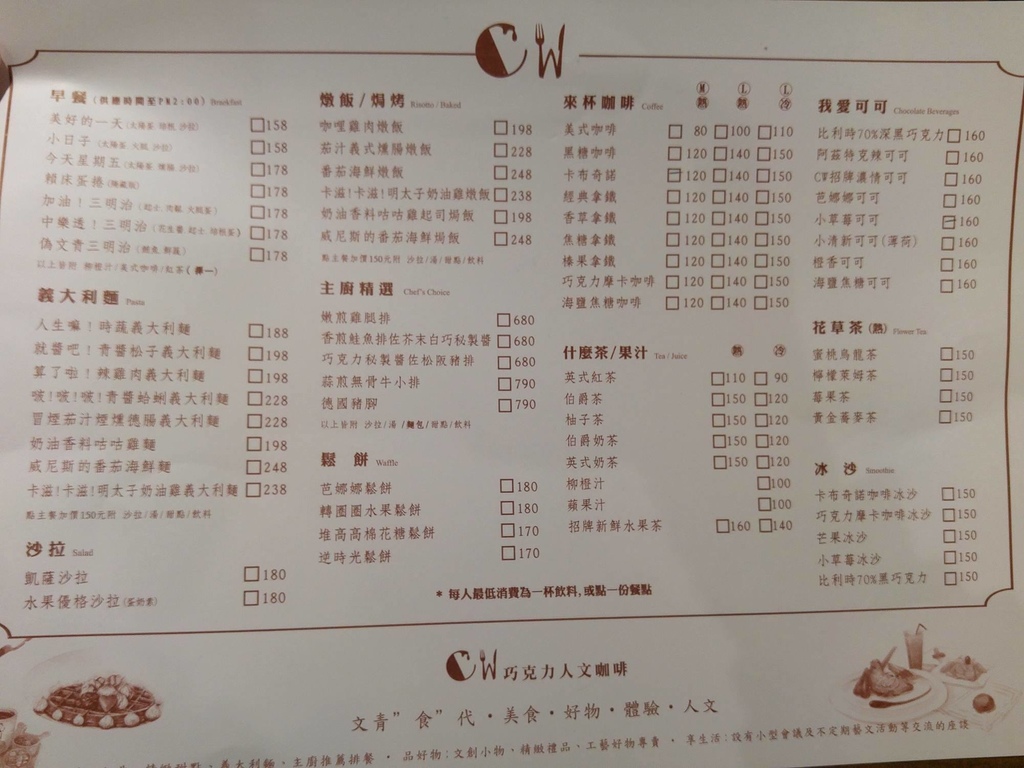 CW
早餐 (供應時間至PM2:00) Breakfast
美好的一天 (太陽蛋 培根 沙拉) 158
小日子 (太陽蛋 火腿 沙拉) 158
今天星期五 (太陽蛋 燻腸 沙拉) 178
賴床蛋捲 (隱藏版) 178
加油!三明治 (起士 肉鬆 火腿蛋) 178
中樂透!三明治 (花生醬 起士 培根蛋) 178
偽文青三明治 (鮪魚 鮮蔬) 178
以上皆附 柳橙汁/美式咖啡/紅茶(擇一)
義大利麵 Pasta
人生嘛!時蔬義大利麵 188
就醬吧!青醬松子義大利麵 198
算了啦!辣雞肉義大利麵 198
啵!啵!啵!青醬蛤蜊義大利麵 228
冒煙茄汁煙燻德腸義大利麵 228
奶油香料咕咕雞麵 198
威尼斯的番茄海鮮麵 248
卡滋!卡滋!明太子奶油雞義大利麵 238
點主餐加價150元附 沙拉/湯/甜點/飲料
沙拉 Salad
凱薩沙拉 180
水果優格沙拉(蛋奶素) 180
燉飯/焗烤 Risotto / Baked
咖哩雞肉燉飯 198
茄汁義式燻腸燉飯 228
番茄海鮮燉飯 248
卡滋!卡滋!明太子奶油雞燉飯 238
奶油香料咕咕雞起司焗飯 198
威尼斯的番茄海鮮焗飯 248
點主餐加價150元附 沙拉/湯/甜點/飲料
主廚精選 Chef's Choice
嫩煎雞腿排 680
香煎鮭魚排佐芥末白巧秘製醬 680
巧克力秘製醬佐松阪豬排 680
蒜煎無骨牛小排 790
德國豬腳 790
以上皆附 沙拉/湯/麵包/甜點/飲料
鬆餅 Waffle
芭娜娜鬆餅 180
轉圈圈水果鬆餅 180
堆高高棉花糖鬆餅 170
逆時光鬆餅 170
來杯咖啡 Coffee M 熱 L 熱 L 冷
美式咖啡 80 100 110
黑糖咖啡 120 140 150
卡布奇諾 120 140 150
經典拿鐵 120 140 150
香草拿鐵 120 140 150
焦糖拿鐵 120 140 150
榛果拿鐵 120 140 150
巧克力摩卡咖啡 120 140 150
海鹽焦糖咖啡 120 140 150
什麼茶/果汁 Tea / Juice 熱 冷
英式紅茶 110 90
伯爵茶 150 120
柚子茶 150 120
伯爵奶茶 150 120
英式奶茶 150 120
柳橙汁 100
蘋果汁 100
招牌新鮮水果茶 160 140
我愛可可 Chocolate Beverages
比利時70%深黑巧克力 160
阿茲特克辣可可 160
CW招牌濃情可可 160
芭娜娜可可 160
小草莓可可 160
小清新可可(薄荷) 160
橙香可可 160
海鹽焦糖可可 160
花草茶(熱) Flower Tea
蜜桃烏龍茶 150
檸檬萊姆茶 150
莓果茶 150
黃金蕎麥茶 150
冰沙 Smoothie
卡布奇諾咖啡冰沙 150
巧克力摩卡咖啡冰沙 150
芒果冰沙 150
小草莓冰沙 150
比利時70%黑巧克力 150
* 每人最低消費為一杯飲料,或點一份餐點
CW巧克力人文咖啡
文青"食"代・美食・好物・體驗・人文
精緻甜點、義大利麵、主廚推薦排餐・品好物:文創小物、精緻禮品、工藝好物專賣・享生活:設有小型會議及不定期藝文活動等交流的座談